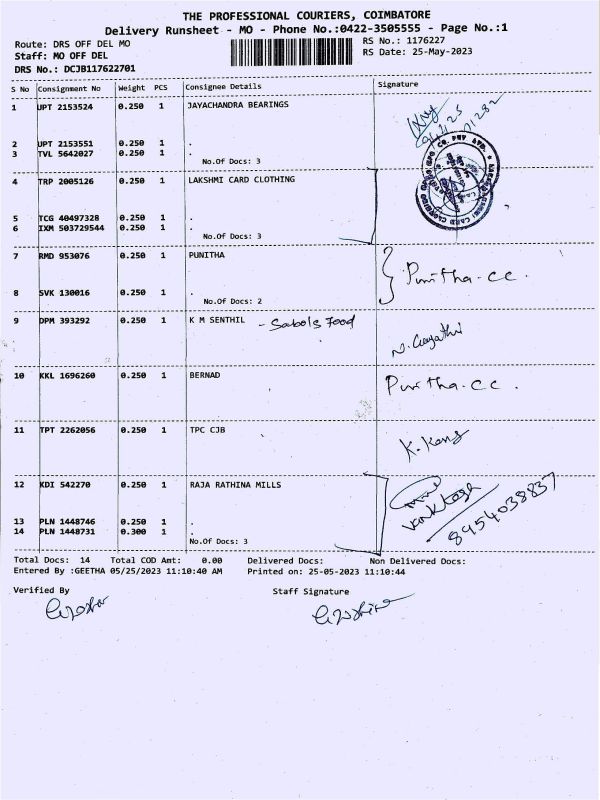 THE PROFESSIONAL COURIERS, COIMBATORE
Delivery Runsheet - MO - Phone No.:0422-3505555 - Page No.:1
Route: DRS OFF DEL MO RS No.: 1176227
Staff: MO OFF DEL RS Date: 25-May-2023
DRS No.: DCJB117622701
S No Consignment No Weight PCS Consignee Details Signature
1 UPT 2153524 0.250 1 JAYACHANDRA BEARINGS
2 UPT 2153551 0.250 1 .
3 TVL 5642027 0.250 1 .
No.Of Docs: 3
4 TRP 2005126 0.250 1 LAKSHMI CARD CLOTHING
5 TCG 40497328 0.250 1 .
6 IXM 503729544 0.250 1 .
No.Of Docs: 3
7 RMD 953076 0.250 1 PUNITHA
Punitha.cc.
8 SVK 130016 0.250 1 .
No.Of Docs: 2
9 DPM 393292 0.250 1 K M SENTHIL - Sabols Food
N. Gayathri
10 KKL 1696260 0.250 1 BERNAD Punitha.cc.
11 TPT 2262056 0.250 1 TPC CJB
12 KDI 542270 0.250 1 RAJA RATHINA MILLS
8954038837
13 PLN 1448746 0.250 1 .
14 PLN 1448731 0.300 1 .
No.Of Docs: 3
Total Docs: 14 Total COD Amt: 0.00 Delivered Docs: Non Delivered Docs:
Entered By :GEETHA 05/25/2023 11:10:40 AM Printed on: 25-05-2023 11:10:44
Verified By Staff Signature